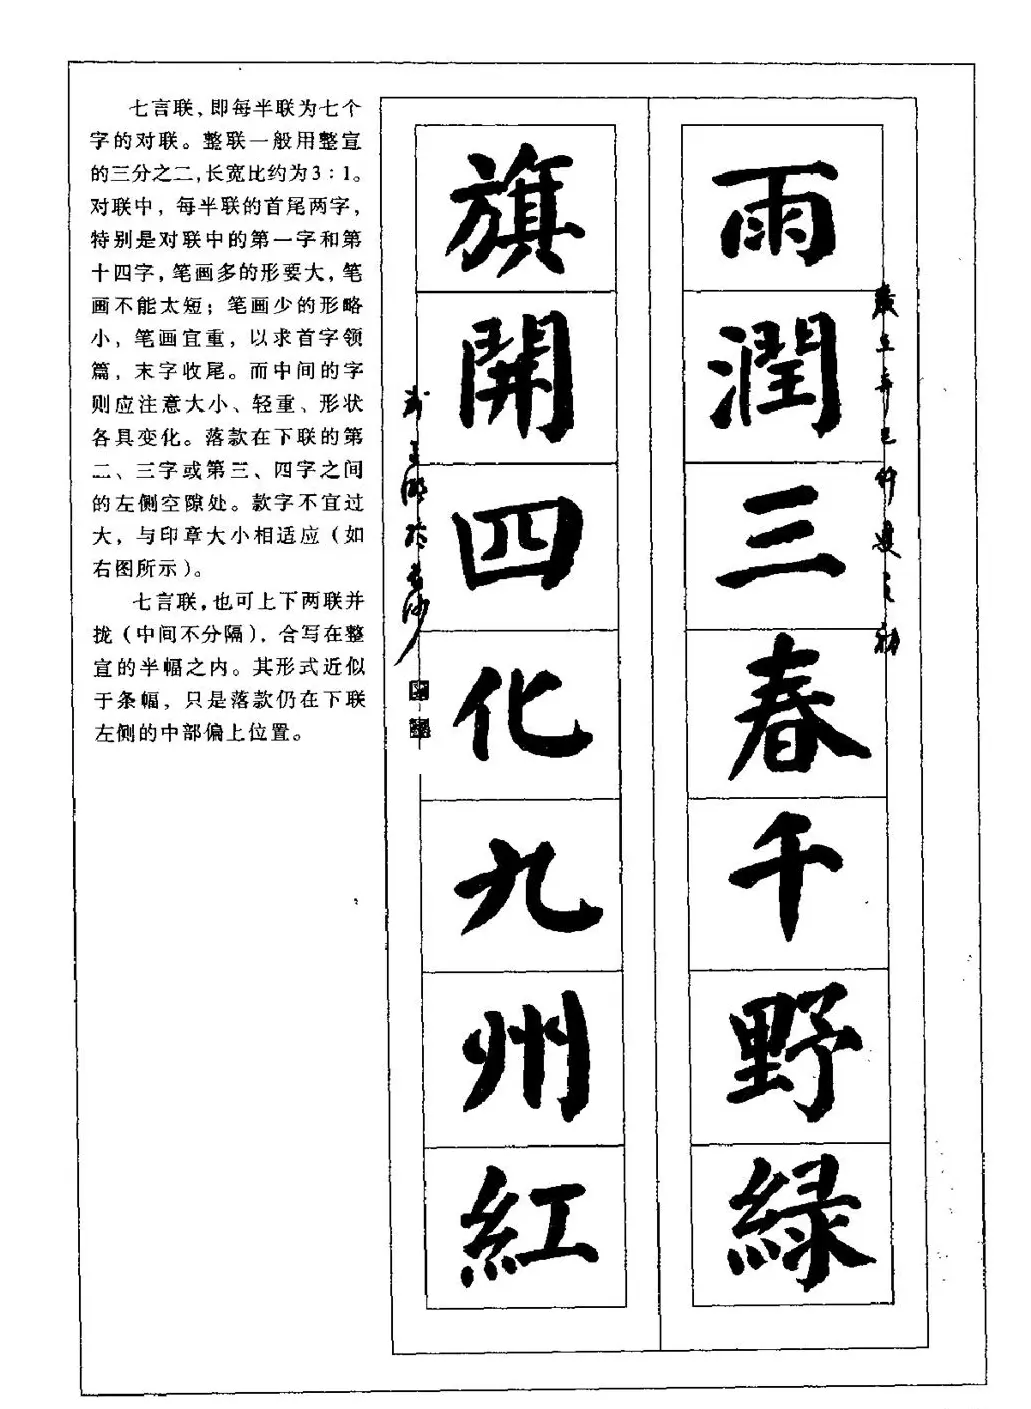 七言联，即每半联为七个
字的对联。整联一般用整宣
的三分之二，长宽比约为3：1。
对联中，每半联的首尾两字，
特别是对联中的第一字和第
十四字，笔画多的形要大，笔
画不能太短；笔画少的形略
小，笔画宜重，以求首字领
篇，末字收尾。而中间的字
则应注意大小、轻重、形状
各具变化。落款在下联的第
二、三字或第三、四字之间
的左侧空隙处。款字不宜过
大，与印章大小相适应（如
右图所示）。
七言联，也可上下两联并
拢（中间不分隔），合写在整
宣的半幅之内。其形式近似
于条幅，只是落款仍在下联
左侧的中部偏上位置。
雨潤三春千野緑
旗開四化九州紅